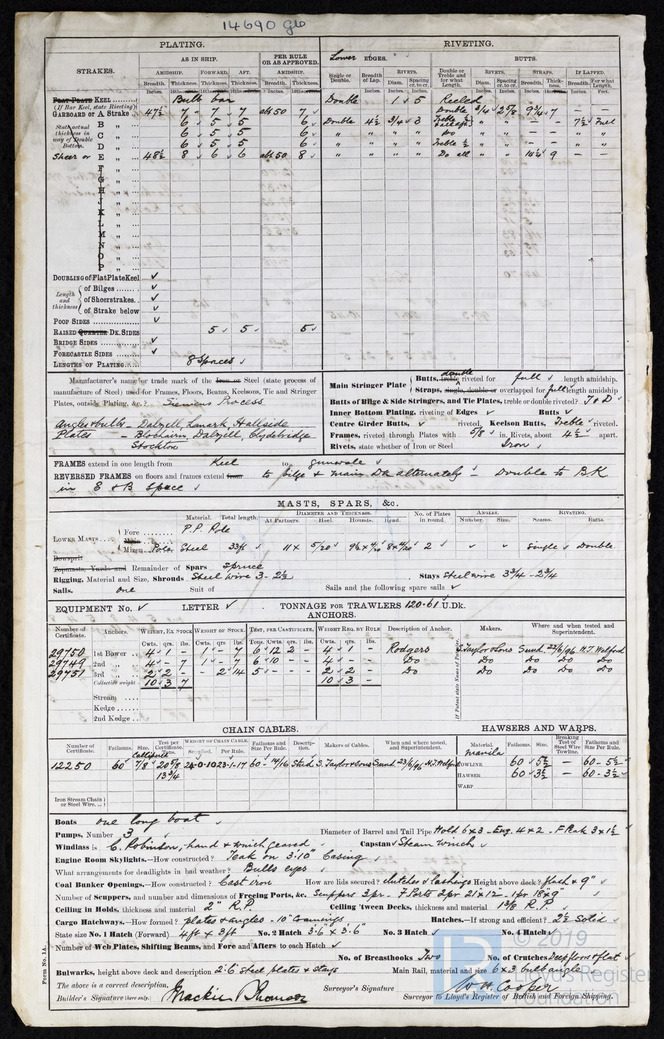 14690 Glo
PLATING. RIVETING.
STRAKES. AS IN SHIP. PER RULE OR AS APPROVED. Lower EDGES. BUTTS.
AMIDSHIP. FORWARD. AFT. AMIDSHIP. Single or Double. Breadth of Lap. RIVETS. Double or Treble and for what Length. RIVETS. STRAPS. IF LAPPED.
Breadth. Thickness. Thickness. Thickness. Breadth. Thickness. Diam. Spacing cr. to cr. Diam. Spacing cr. to cr. Breadth. Thickness. Breadth. For what Length.
FLAT PLATE KEEL Bulb bar Double 1 5 Keeled
(If Bar Keel, state Riveting)
GARBOARD or A Strake 47½ 7 7 7 abt 50 7 Double 3/4 2 5/8 9 3/4 7 — —
B „ 6 5 5 6 Double 4½ 3/4 3 Treble ½ — 7½ Full
State actual thickness in way of Double Bottom.
C „ 6 5 5 6 „ „ „ „ Do „ „ — „ „
D „ 6 5 5 6 „ „ „ „ Treble ½ „ „ — „ „
Sheer or E „ 48½ 8 6 6 abt 50 8 „ „ „ „ Do all „ „ 9 — —
F „
G „
H „
I „
J „
K „
L „
M „
N „
O „
P „
DOUBLING of Flat Plate Keel
Length and thickness of Bilges
of Sheerstrakes
of Strake below
POOP SIDES
RAISED QUARTER DK. SIDES 5 5 5
BRIDGE SIDES
FORECASTLE SIDES
LENGTHS OF PLATING 8 Spaces
Manufacturer's name or trade mark of the Iron or Steel (state process of
manufacture of Steel) used for Frames, Floors, Beams, Keelsons, Tie and Stringer
Plates, outside Plating, &c.? Siemens Process
Angles & bulbs - Dalzell, Lanark, Hallside
Plates - Blochairn, Dalzell, Clydebridge
Stockton
Main Stringer Plate Butts, treble double riveted for full length amidship.
Straps, single, double or overlapped for full length amidship
Butts of Bilge & Side Stringers, and Tie Plates, treble or double riveted? T & D
Inner Bottom Plating, riveting of Edges Butts
Centre Girder Butts, riveted. Keelson Butts, Treble riveted.
Frames, riveted through Plates with 5/8 in. Rivets, about 4½ apart.
Rivets, state whether of Iron or Steel Iron
FRAMES extend in one length from Keel to gunwale
REVERSED FRAMES on floors and frames extend from to bilge & main Dk alternately - Double to BK
in E & B Space
MASTS, SPARS, &c.
Material. Total length. DIAMETER AND THICKNESS. No. of Plates in round. ANGLES. RIVETING.
At Partners. Heel. Hounds. Head. Number. Size. Seams. Butts.
LOWER MASTS Fore P.P. Pole
Main
Mizen Pole Steel 33ft 11 x 5/20 9½ x 4/20 8 x 4/20 2 „ „ Single Double
Bowsprit
Topmasts, Yards and Remainder of Spars Spruce
Rigging, Material and Size, Shrouds Steel Wire 3 - 2½ Stays Steel wire 3 3/4 - 2 3/4
Sails. one Suit of Sails and the following spare sails
EQUIPMENT No. LETTER TONNAGE FOR TRAWLERS 120.61 U.Dk.
ANCHORS.
Number of Certificate. Anchors. WEIGHT, EX. STOCK WEIGHT OF STOCK. TEST, PER CERTIFICATE. WEIGHT REQ. BY RULE Description of Anchor. Makers. Where and when tested and Superintendent.
Cwts. qrs. lbs. Cwts. qrs lbs. Tons. Cwts. qrs. lbs. Cwts. qrs. lbs.
29750 1st Bower 4 1 — 1 — 7 6 12 2 — 4 1 — Rodgers S. Taylor & Sons Sund 22/6/96 N.T. Welford
29749 2nd „ 4 — 7 1 — 7 6 10 — — 4 — — Do Do Do Do Do
29751 3rd „ 2 2 — — 2 14 5 — — — 2 2 — Do Do Do Do Do
Collective weight 10 3 7 10 3 —
Stream
Kedge
2nd Kedge
CHAIN CABLES. HAWSERS AND WARPS.
Number of Certificate. Fathoms. Size. Test per Certificate. WEIGHT OF CHAIN CABLE. Supplied. Per Rule. Fathoms and Size Per Rule. Description. Makers of Cables. When and where tested, and Superintendent. Material. Fathoms. Size. Breaking Test of Steel Wire Towline. Fathoms and Size Per Rule.
12250 60 7/8 20 5/8 24-0-10 23-1-17 60 - 14/16 Stud S. Taylor & Sons Sund 23/6/96 N.T. Welford
13 3/4
Manila
TOWLINE 60 5½ — 60 - 5½
HAWSER 60 3½ — 60 - 3½
WARP
Iron Stream Chain or Steel Wire
Boats one long boat
Pumps, Number 3 Diameter of Barrel and Tail Pipe Hold 6 x 3 - Eng. 4 x 2 - F Peak 3 x 1½
Windlass is C. Robinson, hand & winch geared Capstan Steam Winch
Engine Room Skylights.—How constructed? Teak on 3'10" Casing
What arrangements for deadlights in bad weather? Bulls eyes
Coal Bunker Openings.—How constructed? Cast iron How are lids secured? clutches & lashings Height above deck? flush & 9"
Number of Scuppers, and number and dimensions of Freeing Ports, &c. Scuppers 3 pr - F. Ports 2 pr 21 x 12 - 1 pr 18 x 9"
Ceiling in Holds, thickness and material 2" R.P Ceiling 'Tween Decks, thickness and material 1⅛ R.P
Cargo Hatchways.—How formed? plates & angles - 10" Coamings Hatches.—If strong and efficient? 2½ Solid
State size No. 1 Hatch (Forward) 4ft x 3ft No. 2 Hatch 3.6 x 3.6 No. 3 Hatch No. 4 Hatch
Number of Web Plates, Shifting Beams, and Fore and Afters to each Hatch
No. of Breasthooks Two No. of Crutches Deep floors & flat
Bulwarks, height above deck and description 2'6 Steel plates & stays Main Rail, material and size 6 x 3 bulb angle
The above is a correct description.
Builder's Signature (here only) Mackie & Thomson Surveyor's Signature W. H. Cooper
Surveyor to Lloyd's Register of British and Foreign Shipping.
Form No. 1A.
© 2019
Lloyd's Register
Foundation